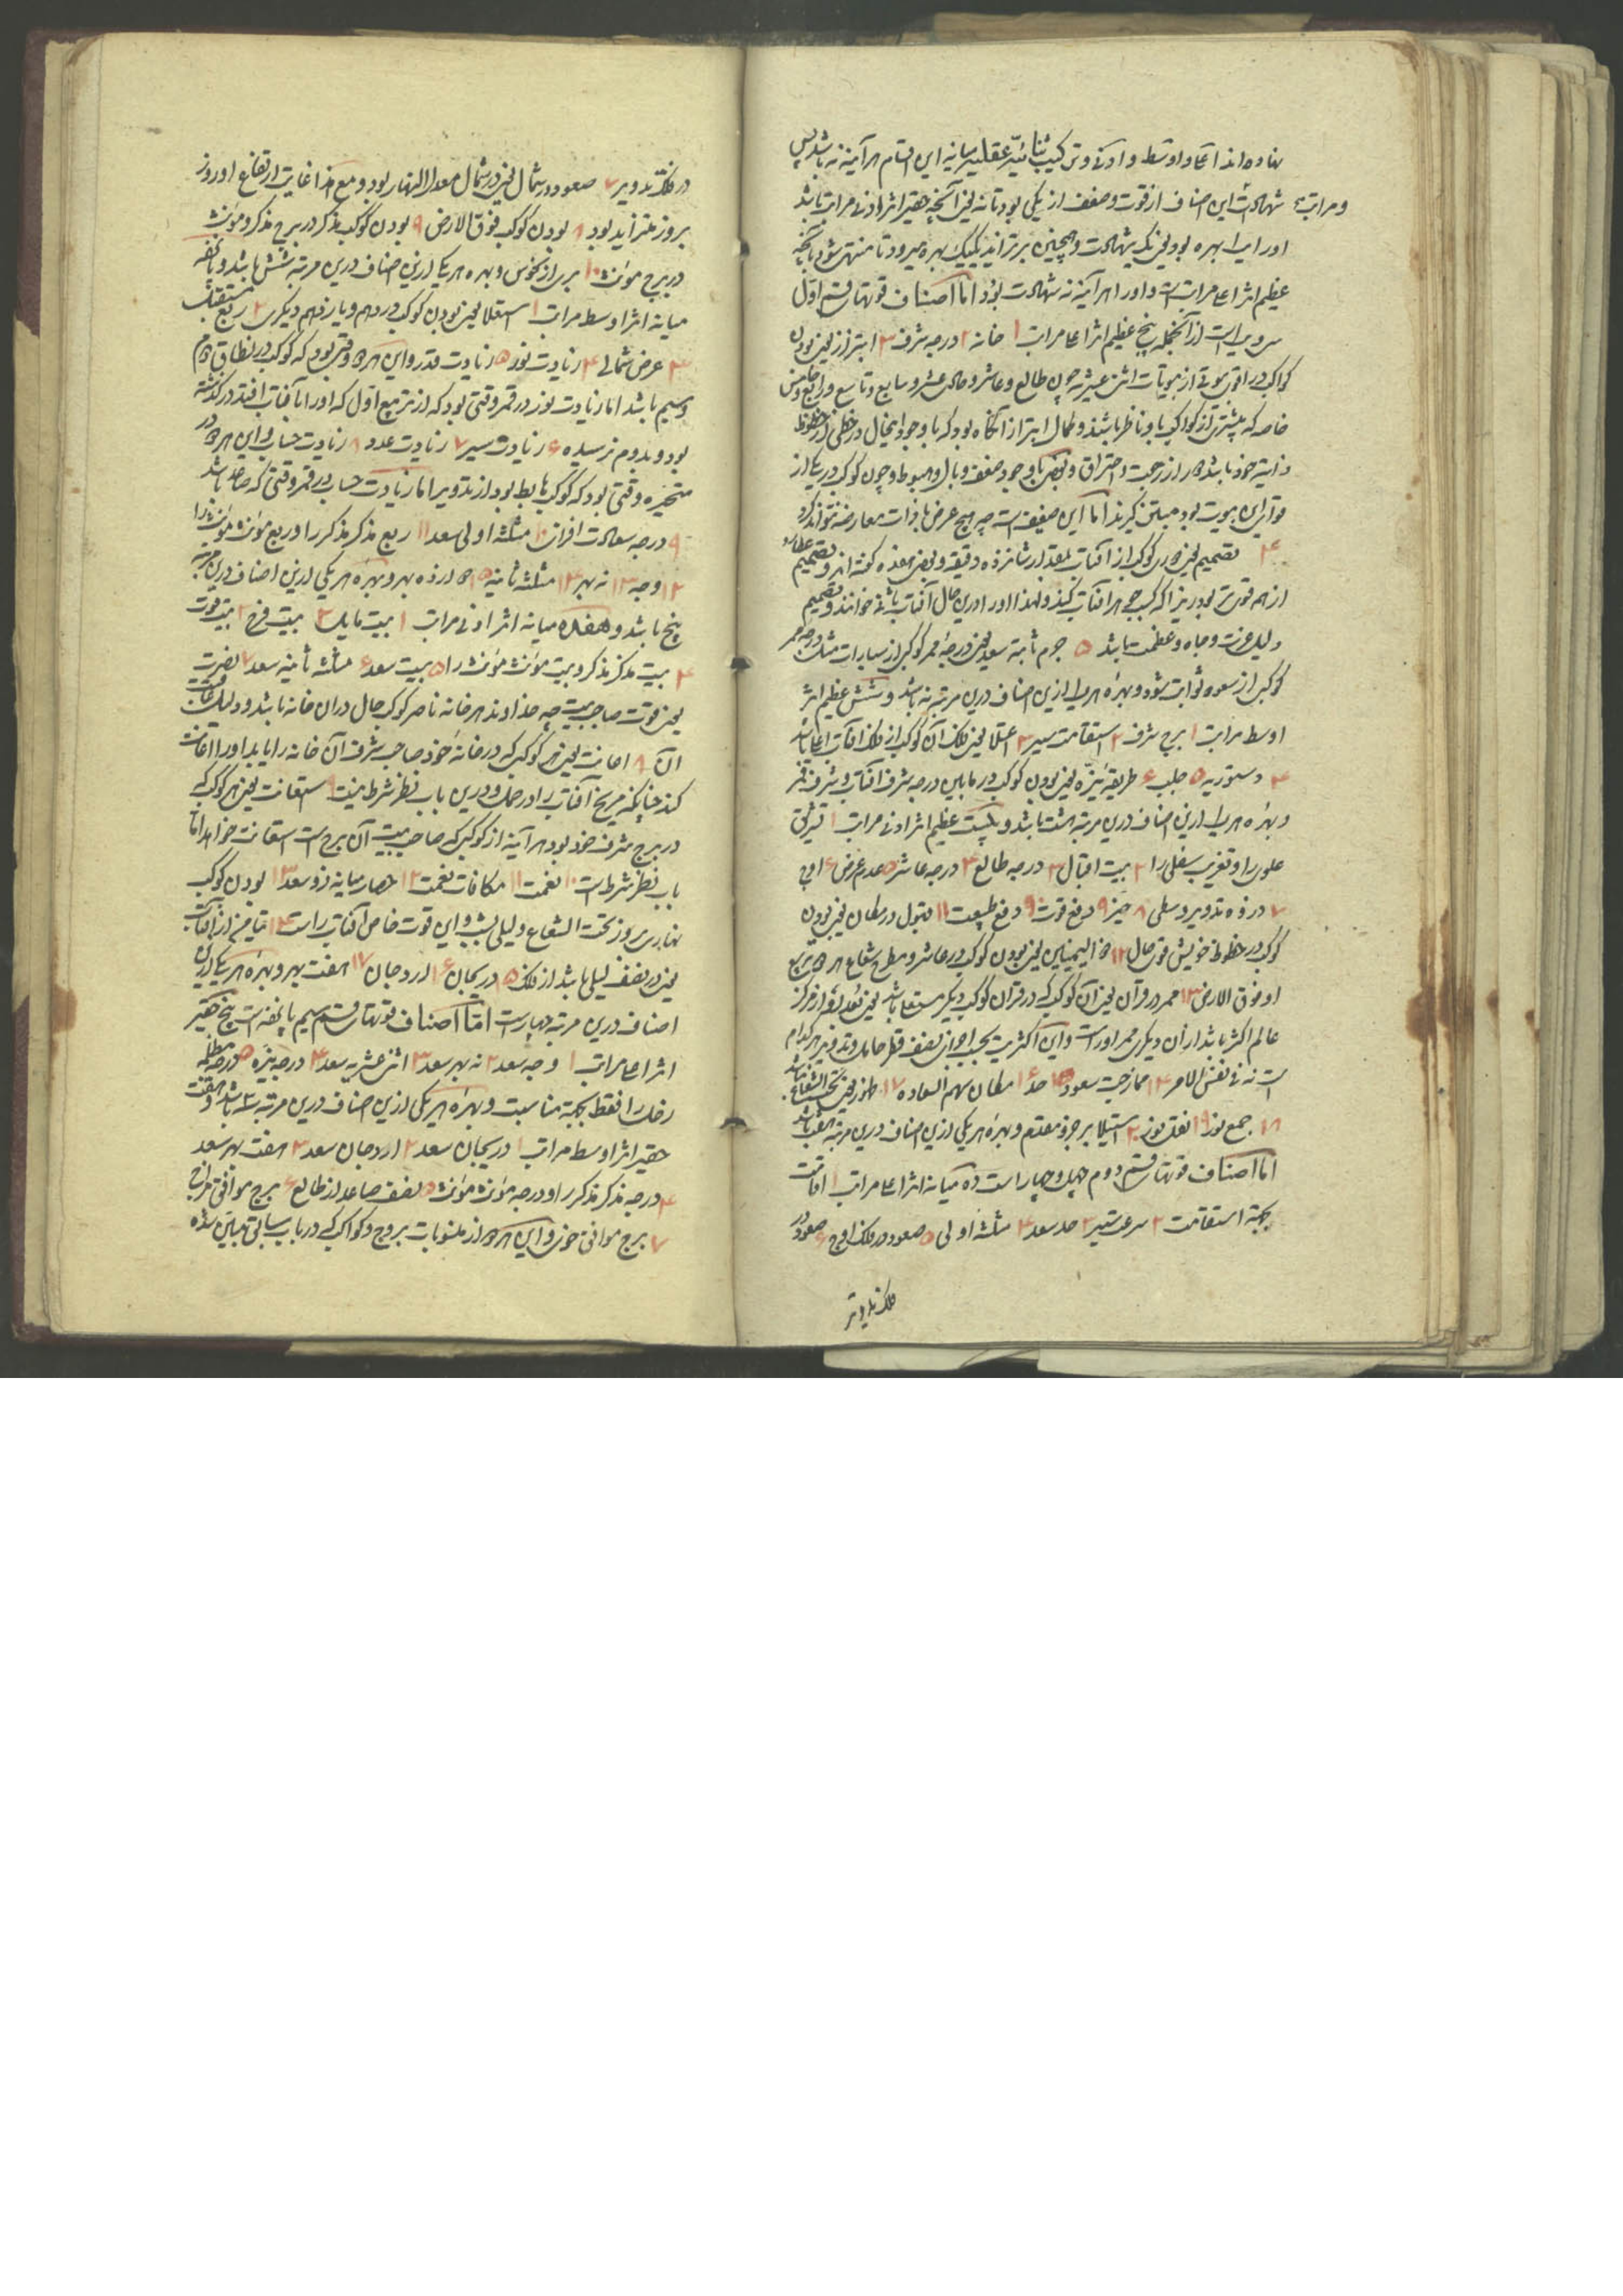 نهاده اند اعلا و اوسط و ادنی و ترکیب ثنائیه عقلیه میانه این اقسام هر آینه نه باشد پس
و مراتب شهادت این اصناف از قوت و ضعف از یکی بود تا نه یعنی آنچه حقیر اثر و ادنی مراتب باشد
او را یک بهره بود یعنی یک شهادت و همچنین بر تزاید یکیک بهره میرود تا منتهی شود بآنچه
عظیم اثر اعلا مراتب است و او را هر آینه نه شهادت بود اما اصناف قوتهای قسم اول
سی و یک است از آنجمله پنج عظیم اثر اعلا مراتب ۱ خانه ۲ درجه شرف ۳ ابتزاز یعنی بودن
کواکب در اقوی بیوتی از بیوتات اثنی عشر چون طالع و عاشر و حادی عشر و سابع و تاسع و رابع و خامس
خاصه که بیشتری از کواکب باو ناظر باشند و کمال ابتزاز آنگاه بود که با وجود اینحال در حظی از حظوظ
ذاتیه خود باشد و از رجعت و احتراق و بعضی با وجود ضعف وبال و هبوط و چون کوکب در یکی از
قوای این بیوت بود مبتز گیرند اما این ضعیف است چه هیچ عرض با ذات معارضه نتواند کرد
۴ تصمیم یعنی دوری کوکب از آفتاب بمقدار شانزده دقیقه و بعضی هفده گفته اند و تصمیم عطارد
از همه قویتر بود زیرا که کسب جوهر آفتاب کند و لهذا او را درین حال آفتاب ثانی خوانند و تصمیم
دلیل عزت و جاه و عظمت باشد ۵ جرم ثابته سعد یعنی درجه ممر کوکبی از سیارات مثل درجه ممر
کوکبی از سعود ثوابت شود و بهره هر یک ازین اصناف درین مرتبه نه باشد و شش عظیم اثر
اوسط مراتب ۱ برج شرف ۲ استقامت سیر ۳ اعتلا یعنی فلک آن کوکب از فلک آفتاب اعلا باشد
۴ دستوریه ۵ حلب ۶ طریقه نیره یعنی بودن کوکب در مابین درجه شرف آفتاب و شرف قمر
و بهره هر یک ازین اصناف درین مرتبه هشت باشد و بیست عظیم اثر ادنی مراتب ۱ تشریق
علوی را و تغریب سفلی را ۲ بیت اقبال ۳ درجه طالع ۴ درجه عاشر ۵ عدم عرض ۶ اوج
۷ در ذروه تدویر وسطی ۸ حیز ۹ دفع قوت ۱۰ دفع طبیعت ۱۱ قبول در مکان یعنی بودن
کوکب در حظوظ خویش قوی حال ۱۲ ذوالیمینین یعنی بودن کوکب در عاشر و مطرح شعاع هر دو تربیع
او فوق الارض ۱۳ ممر در قرآن یعنی آن کوکب که در قران کوکب دیگر مستعلا باشد یعنی بعد او از مرکز
عالم اکثر باشد از آن دیگری ممر او راست و این اکثریت بحسب اجزای نصف قطر حامل و تدویر هر کدام
است نه فی نفس الامر ۱۴ ممازجت سعود ۱۵ حد ۱۶ مکان سهم السعاده ۱۷ ظهور یعنی تحت الشعاع نباشد
۱۸ جمع نور ۱۹ نقل نور ۲۰ استیلا بر جزو مقدم و بهره هر یکی ازین اصناف درین مرتبه هفت باشد
اما اصناف قوتهای قسم دوم چهل و چهار است ده میانه اثر اعلا مراتب ۱ اقامت
بجهة استقامت ۲ سرعت سیر ۳ حد سعد ۴ مثلثه اولی ۵ صعود در فلک اوج ۶ صعود در
فلک تدویر
در فلک تدویر ۷ صعود در شمال یعنی در شمال معدل النهار بود و مع هذا غایت ارتفاع او روز
بروز متزاید بود ۸ بودن کوکب فوق الارض ۹ بودن کوکب مذکر در برج مذکر و مؤنث
در برج مؤنث ۱۰ بری از نحوس و بهره هر یک ازین اصناف درین مرتبه شش باشد و پانزده
میانه اثر اوسط مراتب ۱ استعلا یعنی بودن کوکب در دهم و یازدهم دیگری ۲ ربع مستقبل
۳ عرض شمالی ۴ زیادت نور ۵ زیادت قدر و این هر دو وقتی بود که کوکب در نطاق دوم
و سیم باشد اما زیادت نور در قمر وقتی بود که از تربیع اول که او را با آفتاب افتد در گذشته
بود و بدوم نرسیده ۶ زیادت سیر ۷ زیادت عدد ۸ زیادت حساب و این هر دو در
متحیره وقتی بود که کوکب هابط بود از تدویر اما زیادت حساب در قمر وقتی که صاعد باشد
۹ درجه سعادت افزا ۱۰ مثلثه اولی سعد ۱۱ ربع مذکر مذکر را و ربع مؤنث مؤنث را
۱۲ وجه ۱۳ نه بهر ۱۴ مثلثه ثانیه ۱۵ دوازده بهر و بهره هر یکی ازین اصناف درین مرتبه
پنج باشد و هفده میانه اثر ادنی مراتب ۱ بیت مایل ۲ بیت فرح ۳ بیت قوت
۴ بیت مذکر مذکر و بیت مؤنث مؤنث را ۵ بیت سعد ۶ مثلثه ثانیه سعد ۷ نصرت
یعنی قوت صاحب بیت چه خداوند هر خانه ناصر کوکب حال در آن خانه باشد و دلیل عاقبت
آن ۸ اعانت یعنی هر کوکبی که در خانه خود صاحب شرف آن خانه را یابد او را اعانت
کند چنانکه مریخ آفتاب را در حمل و درین باب نظر شرط نیست ۹ استعانت یعنی هر کوکب که
در برج شرف خود بود هر آینه از کوکبی که صاحب بیت آن برج است استعانت خواهد اما
باب نظر شرط است ۱۰ نعمت ۱۱ مکافات نعمت ۱۲ حصار میانه دو سعد ۱۳ بودن کوکب
نهاری بروز تحت الشعاع و لیلی بشب و این قوت خاص آفتاب راست ۱۴ تیامن از آفتاب
یعنی در نصف لیلی باشد از فلک ۱۵ دریجان ۱۶ اردجان ۱۷ هفت بهر و بهره هر یک ازین
اصناف درین مرتبه چهارست اما اصناف قوتهای قسم سیم پانزده است پنج حقیر
اثر اعلا مراتب ۱ وجه سعد ۲ نه بهر سعد ۳ اثنی عشریه سعد ۴ درجه نیره ۵ درجه مظلمه
زحل را فقط بجهة مناسبت و بهره هر یکی ازین اصناف درین مرتبه سه باشد و هفت
حقیر اثر اوسط مراتب ۱ دریجان سعد ۲ اردجان سعد ۳ هفت بهر سعد
۴ درجه مذکر مذکر را و درجه مؤنث مؤنث ۵ نصف صاعد از طالع ۶ برج موافق مزاج
۷ برج موافق حوزی و این هر دو از منسوبات بروج و کواکب که در باب سیاتی مباین شده